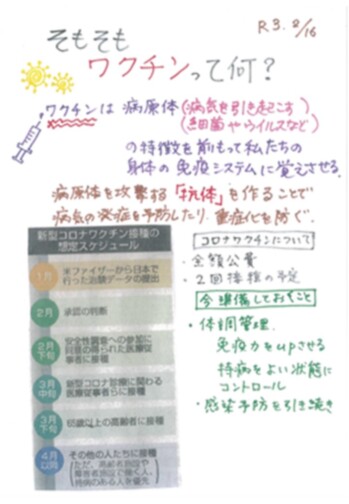 R3. 2/16
そもそも
ワクチンって何？
ワクチンは 病原体(病気を引き起こす
(細菌やウイルスなど)
の特徴を前もって私たちの
身体の免疫システムに覚えさせる。
病原体を攻撃する「抗体」を作ることで
病気の発症を予防したり、重症化を防ぐ。
新型コロナワクチン接種の
想定スケジュール
1月
米ファイザーから日本で
行った治験データの提出
2月
承認の判断
2月
下旬
安全性調査への参加に
同意の得られた医療従
事者に接種
3月
中旬
新型コロナ診療に関わる
医療従事者らに接種
3月
下旬
65歳以上の高齢者に接種
4月
以降
その他の人たちに接種
(ただ、高齢者施設や
障害者施設で働く人、
持病のある人を優先
コロナワクチンについて
・全額公費
・2回接種の予定
今準備しておくこと
・体調管理
免疫力をupさせる
持病をよい状態に
コントロール
・感染予防を引き続き